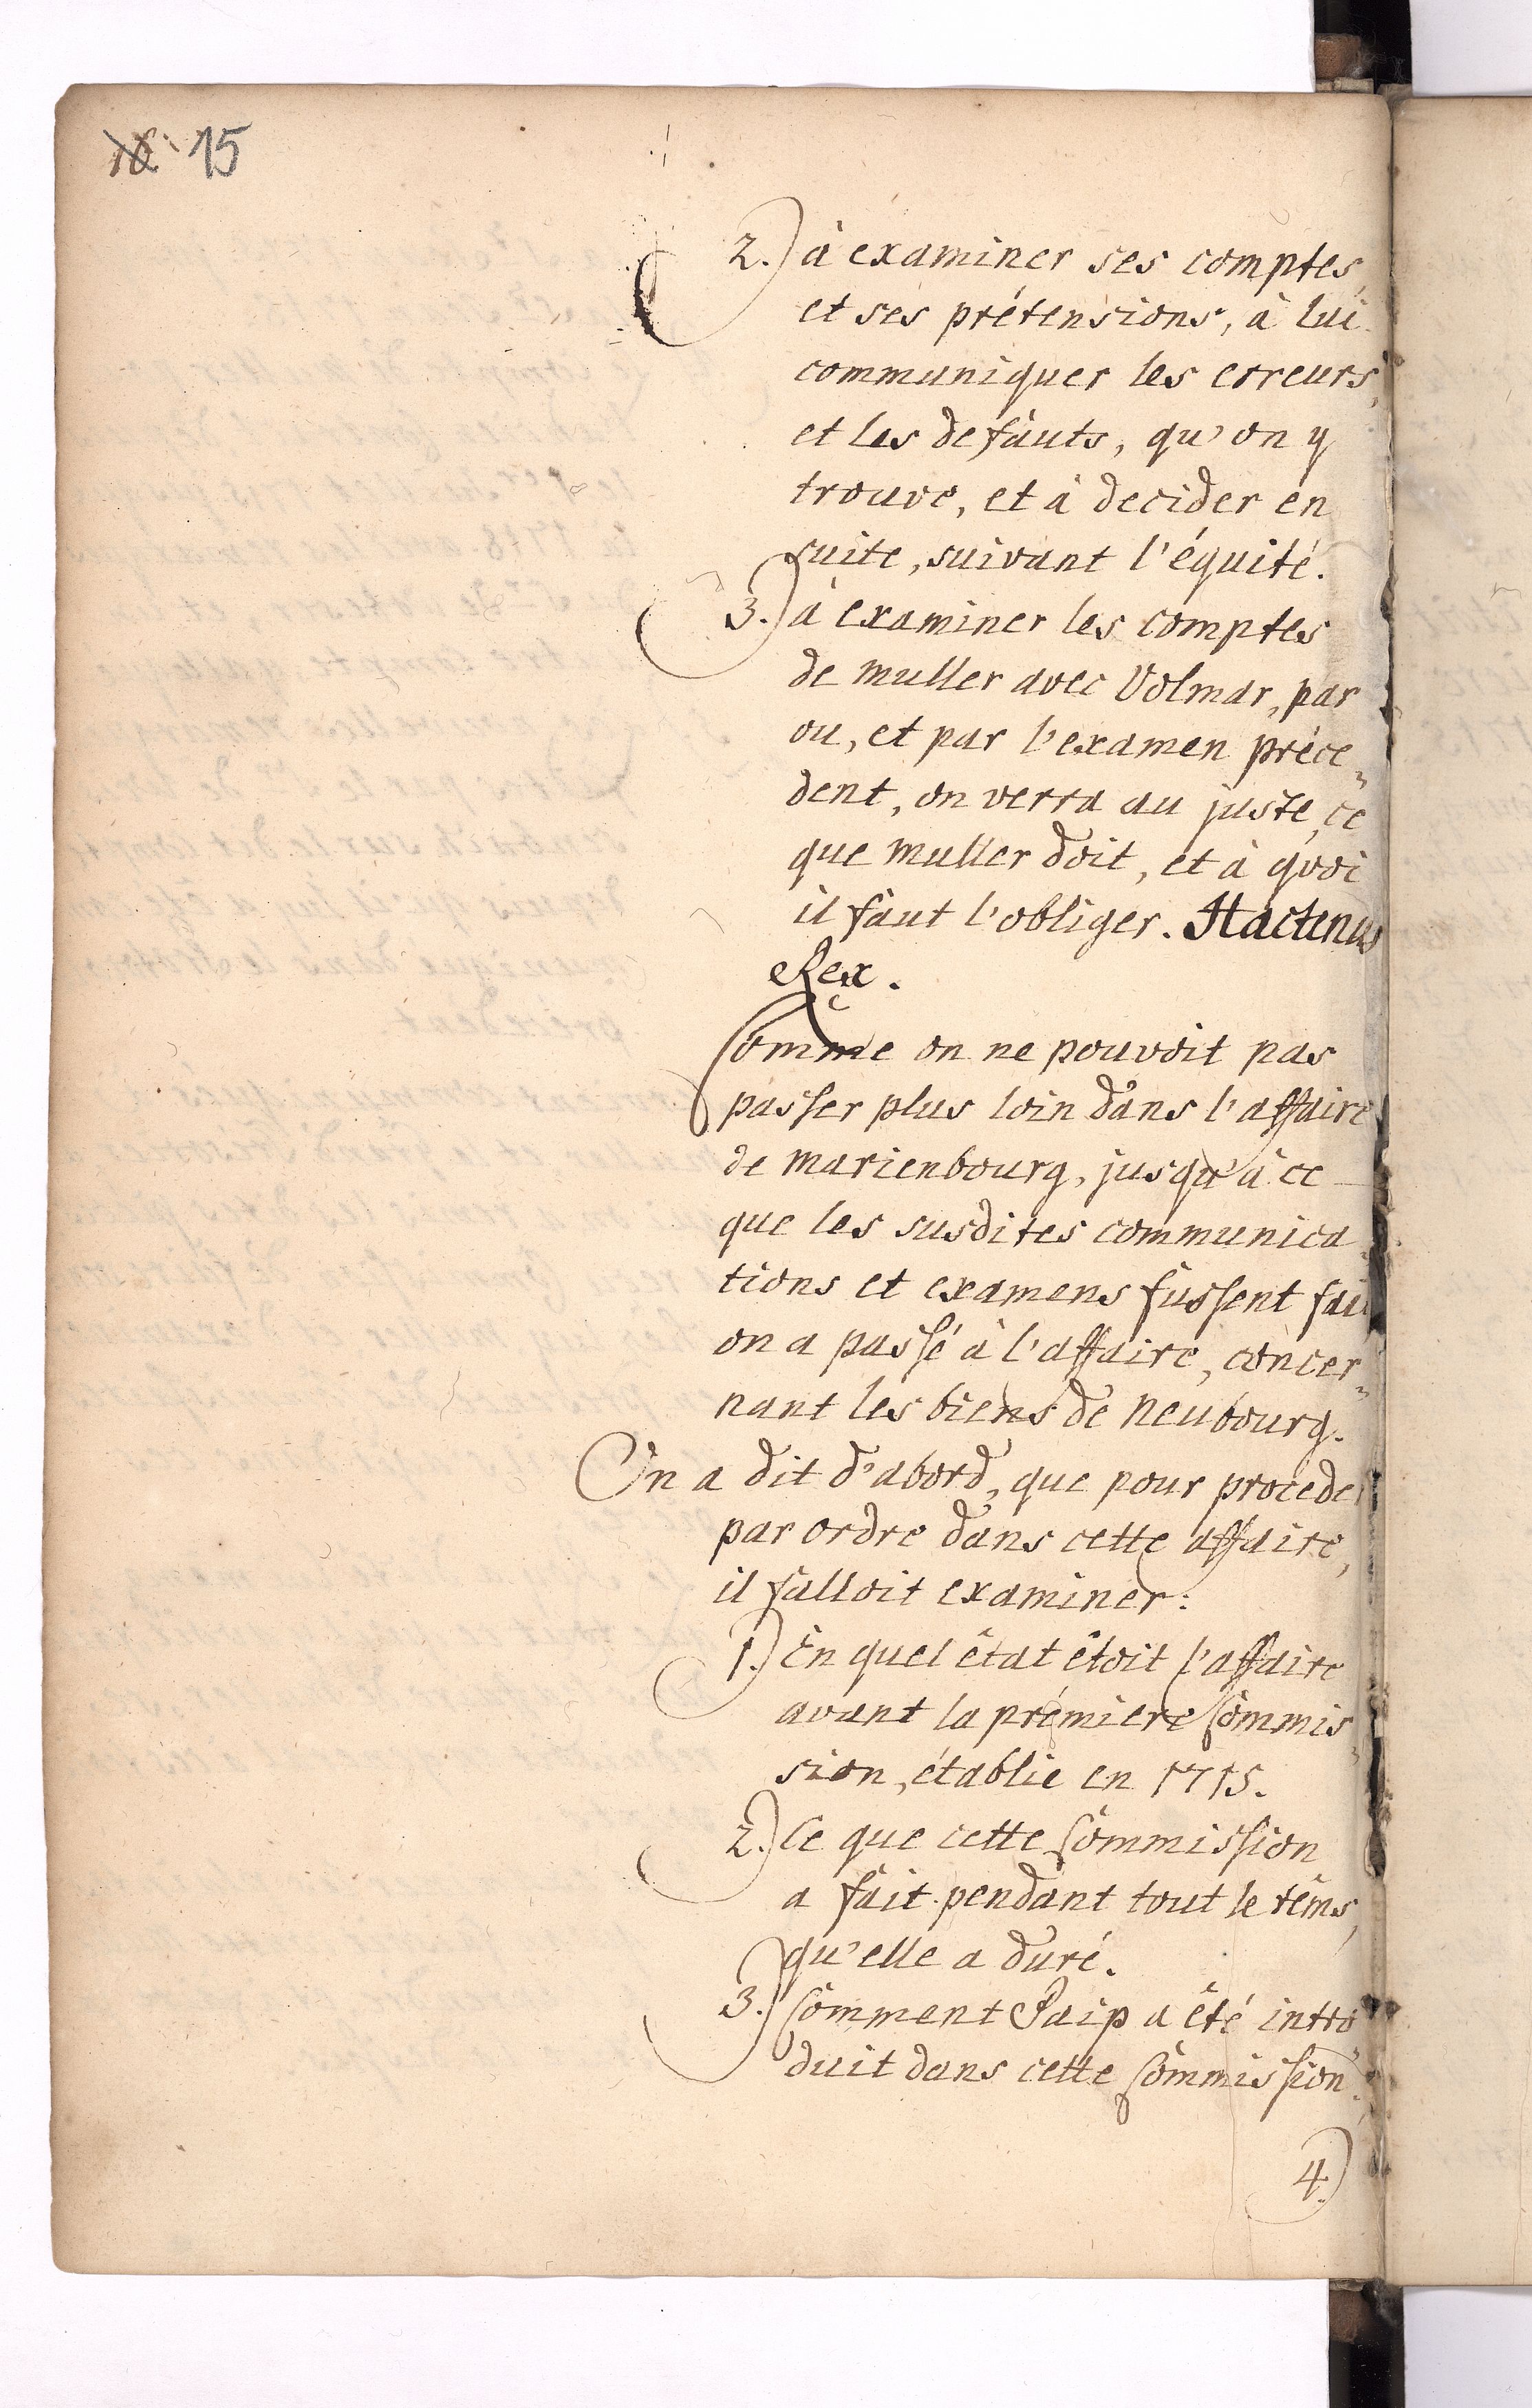 15
2.) à examiner ses comptes,
et ses prétensions, à lui
communiquer les erreurs,
et les defauts, qu'on y
trouve, et à decider en
suite, suivant l'équité.
3.) à examiner les comptes
de Muller avec Volmar, par
ou, et par l'examen préce„
dent, on verra au juste, ce
que Muller doit, et à quoi
il faut l'obliger. Hactenus
Rex.
Comme on ne pouvoit pas
passer plus loin dans l'affaire
de Marienbourg, jusqu'à ce
que les susdites communica
tions et examens fussent fai
on a passé à l'affaire, concer„
nant les biens de Neubourg.
On a dit d'abord, que pour proceder
par ordre dans cette affaire,
il falloit examiner:
1.) En quel état étoit l'affaire
avant la prémiere Commis„
sion, établie en 1715.
2.) Ce que cette Commission
a fait pendant tout le têms,
qu'elle a duré.
3.) Comment Paip a été intro
duit dans cette Commission.
4.)